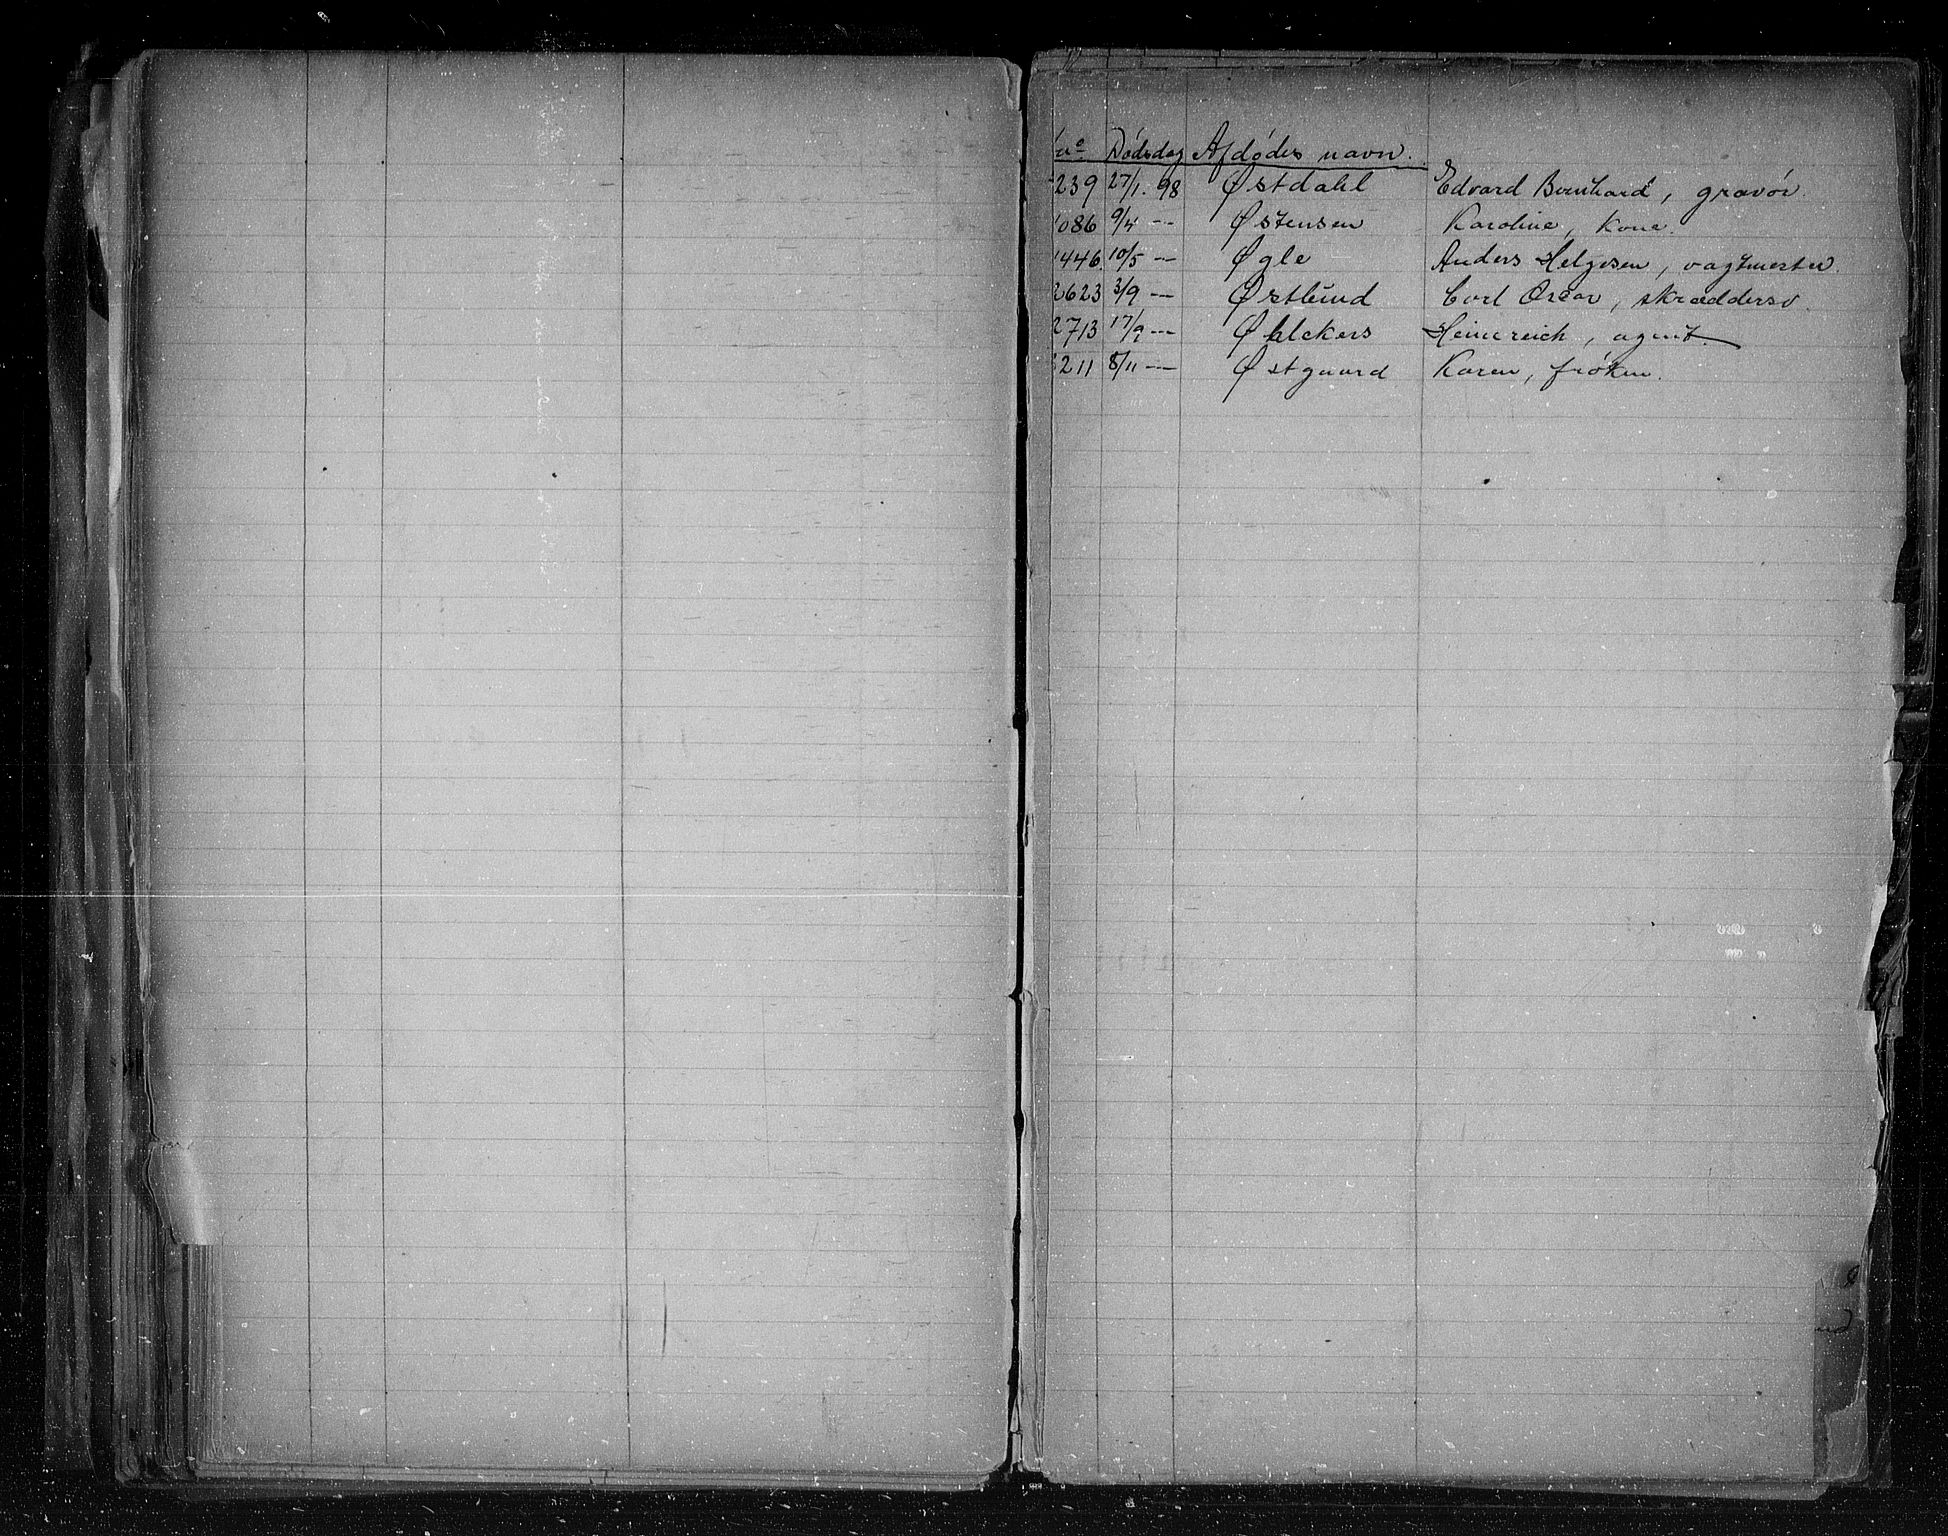 No Dødsdag Afdødes navn.
239 27/1. 98 Østdahl Edvard Bernhard, gravør.
1086 9/4 — Østensen Karoline, kone.
1446. 10/5 — Øgle Anders Helgesen, vagtmester.
2623 3/9 — Østlund Carl Oscar, skræddersv.
2713 17/9 — Ø Heinereich, agent.
3211 8/11 — Østgaard Karen, frøken.